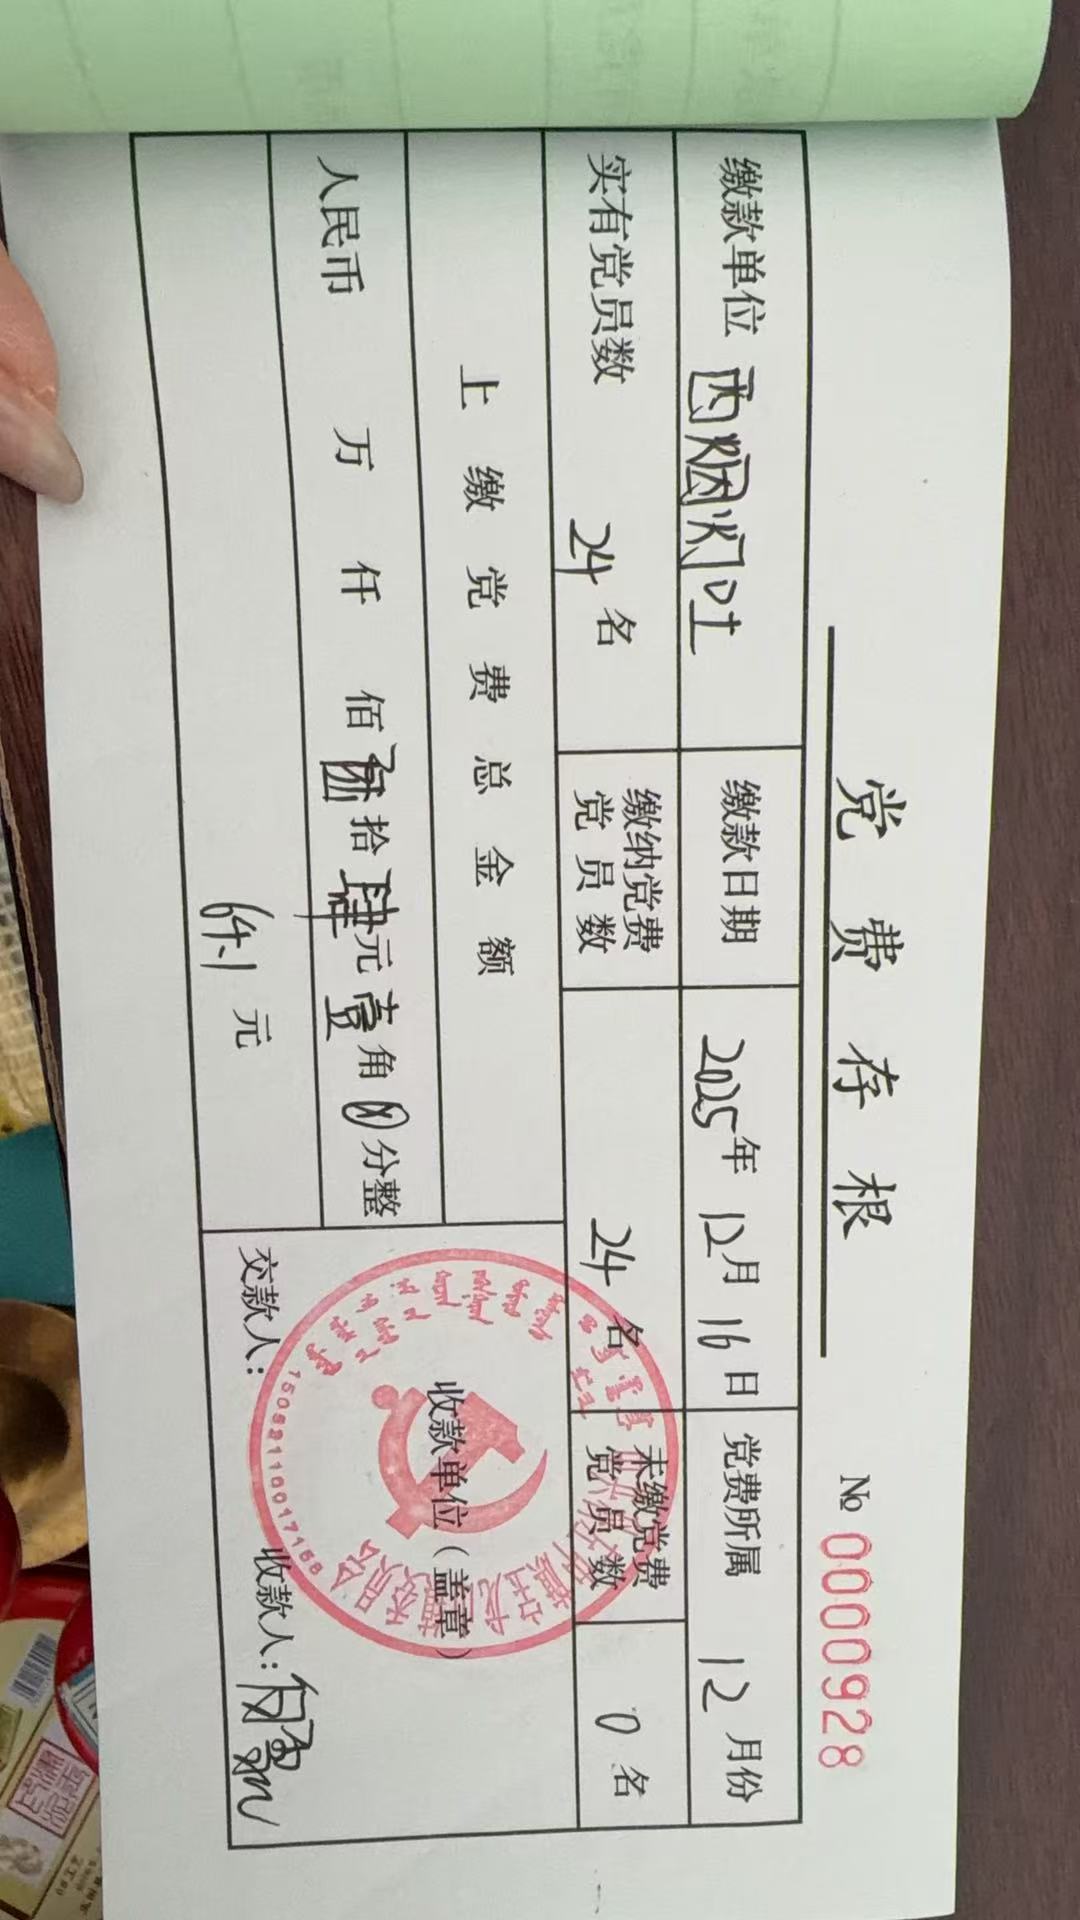 党费存根
№ 0000928
缴款单位 西烟灯吐 缴款日期 2025年 12月 16日 党费所属 12 月份
实有党员数 24 名 缴纳党费党员数 24 名 未缴党费党员数 0 名
上缴党费总金额
人民币 万 仟 佰 陆拾肆元壹角⊗分整
64.1 元
收款单位（盖章）
交款人： 收款人：